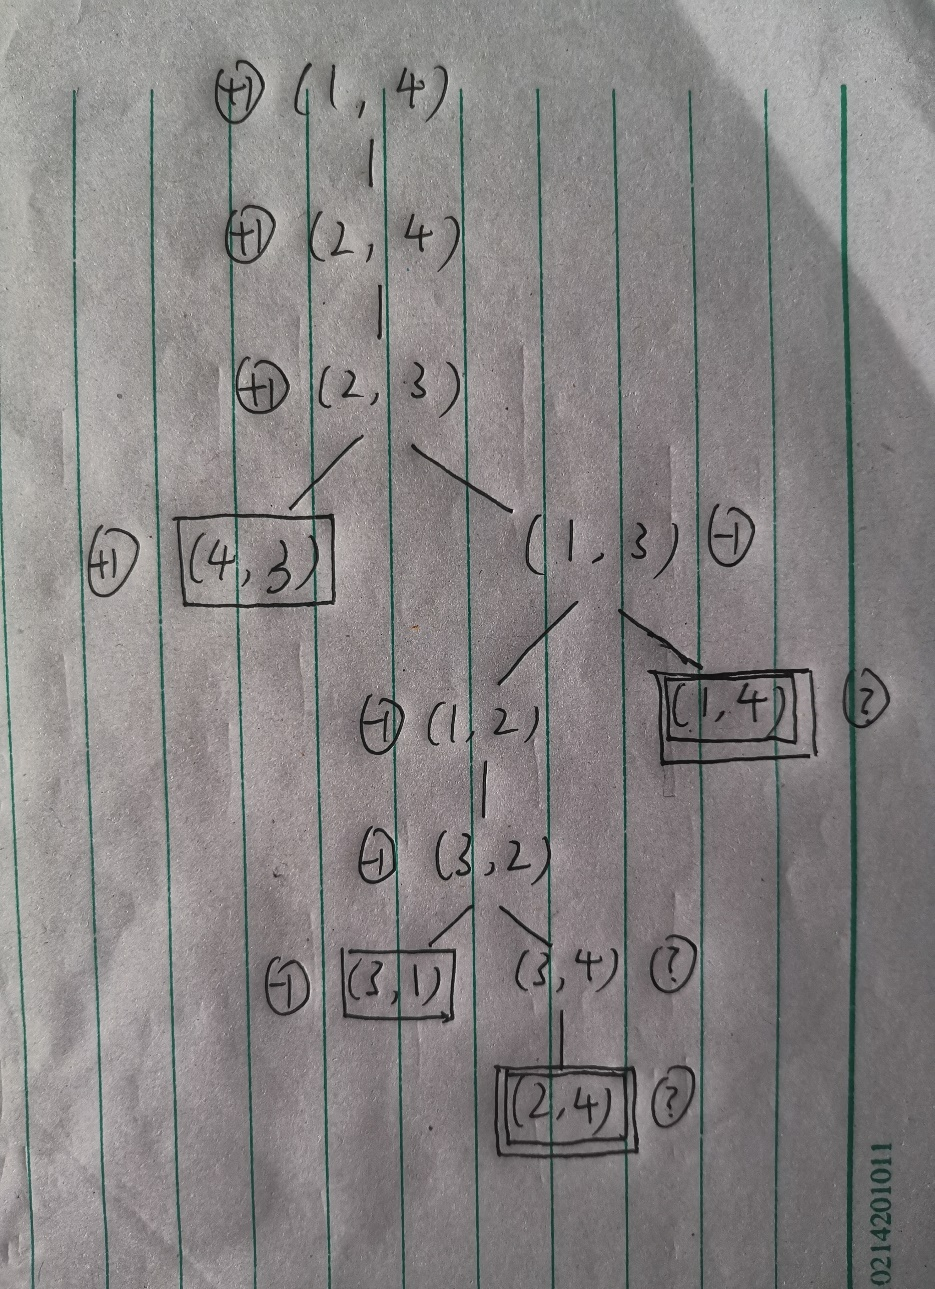 +1 (1, 4)
+1 (2, 4)
+1 (2, 3)
+1 (4, 3) (1, 3) -1
-1 (1, 2) (1, 4) ?
-1 (3, 2)
-1 (3, 1) (3, 4) ?
(2, 4) ?
0214201011